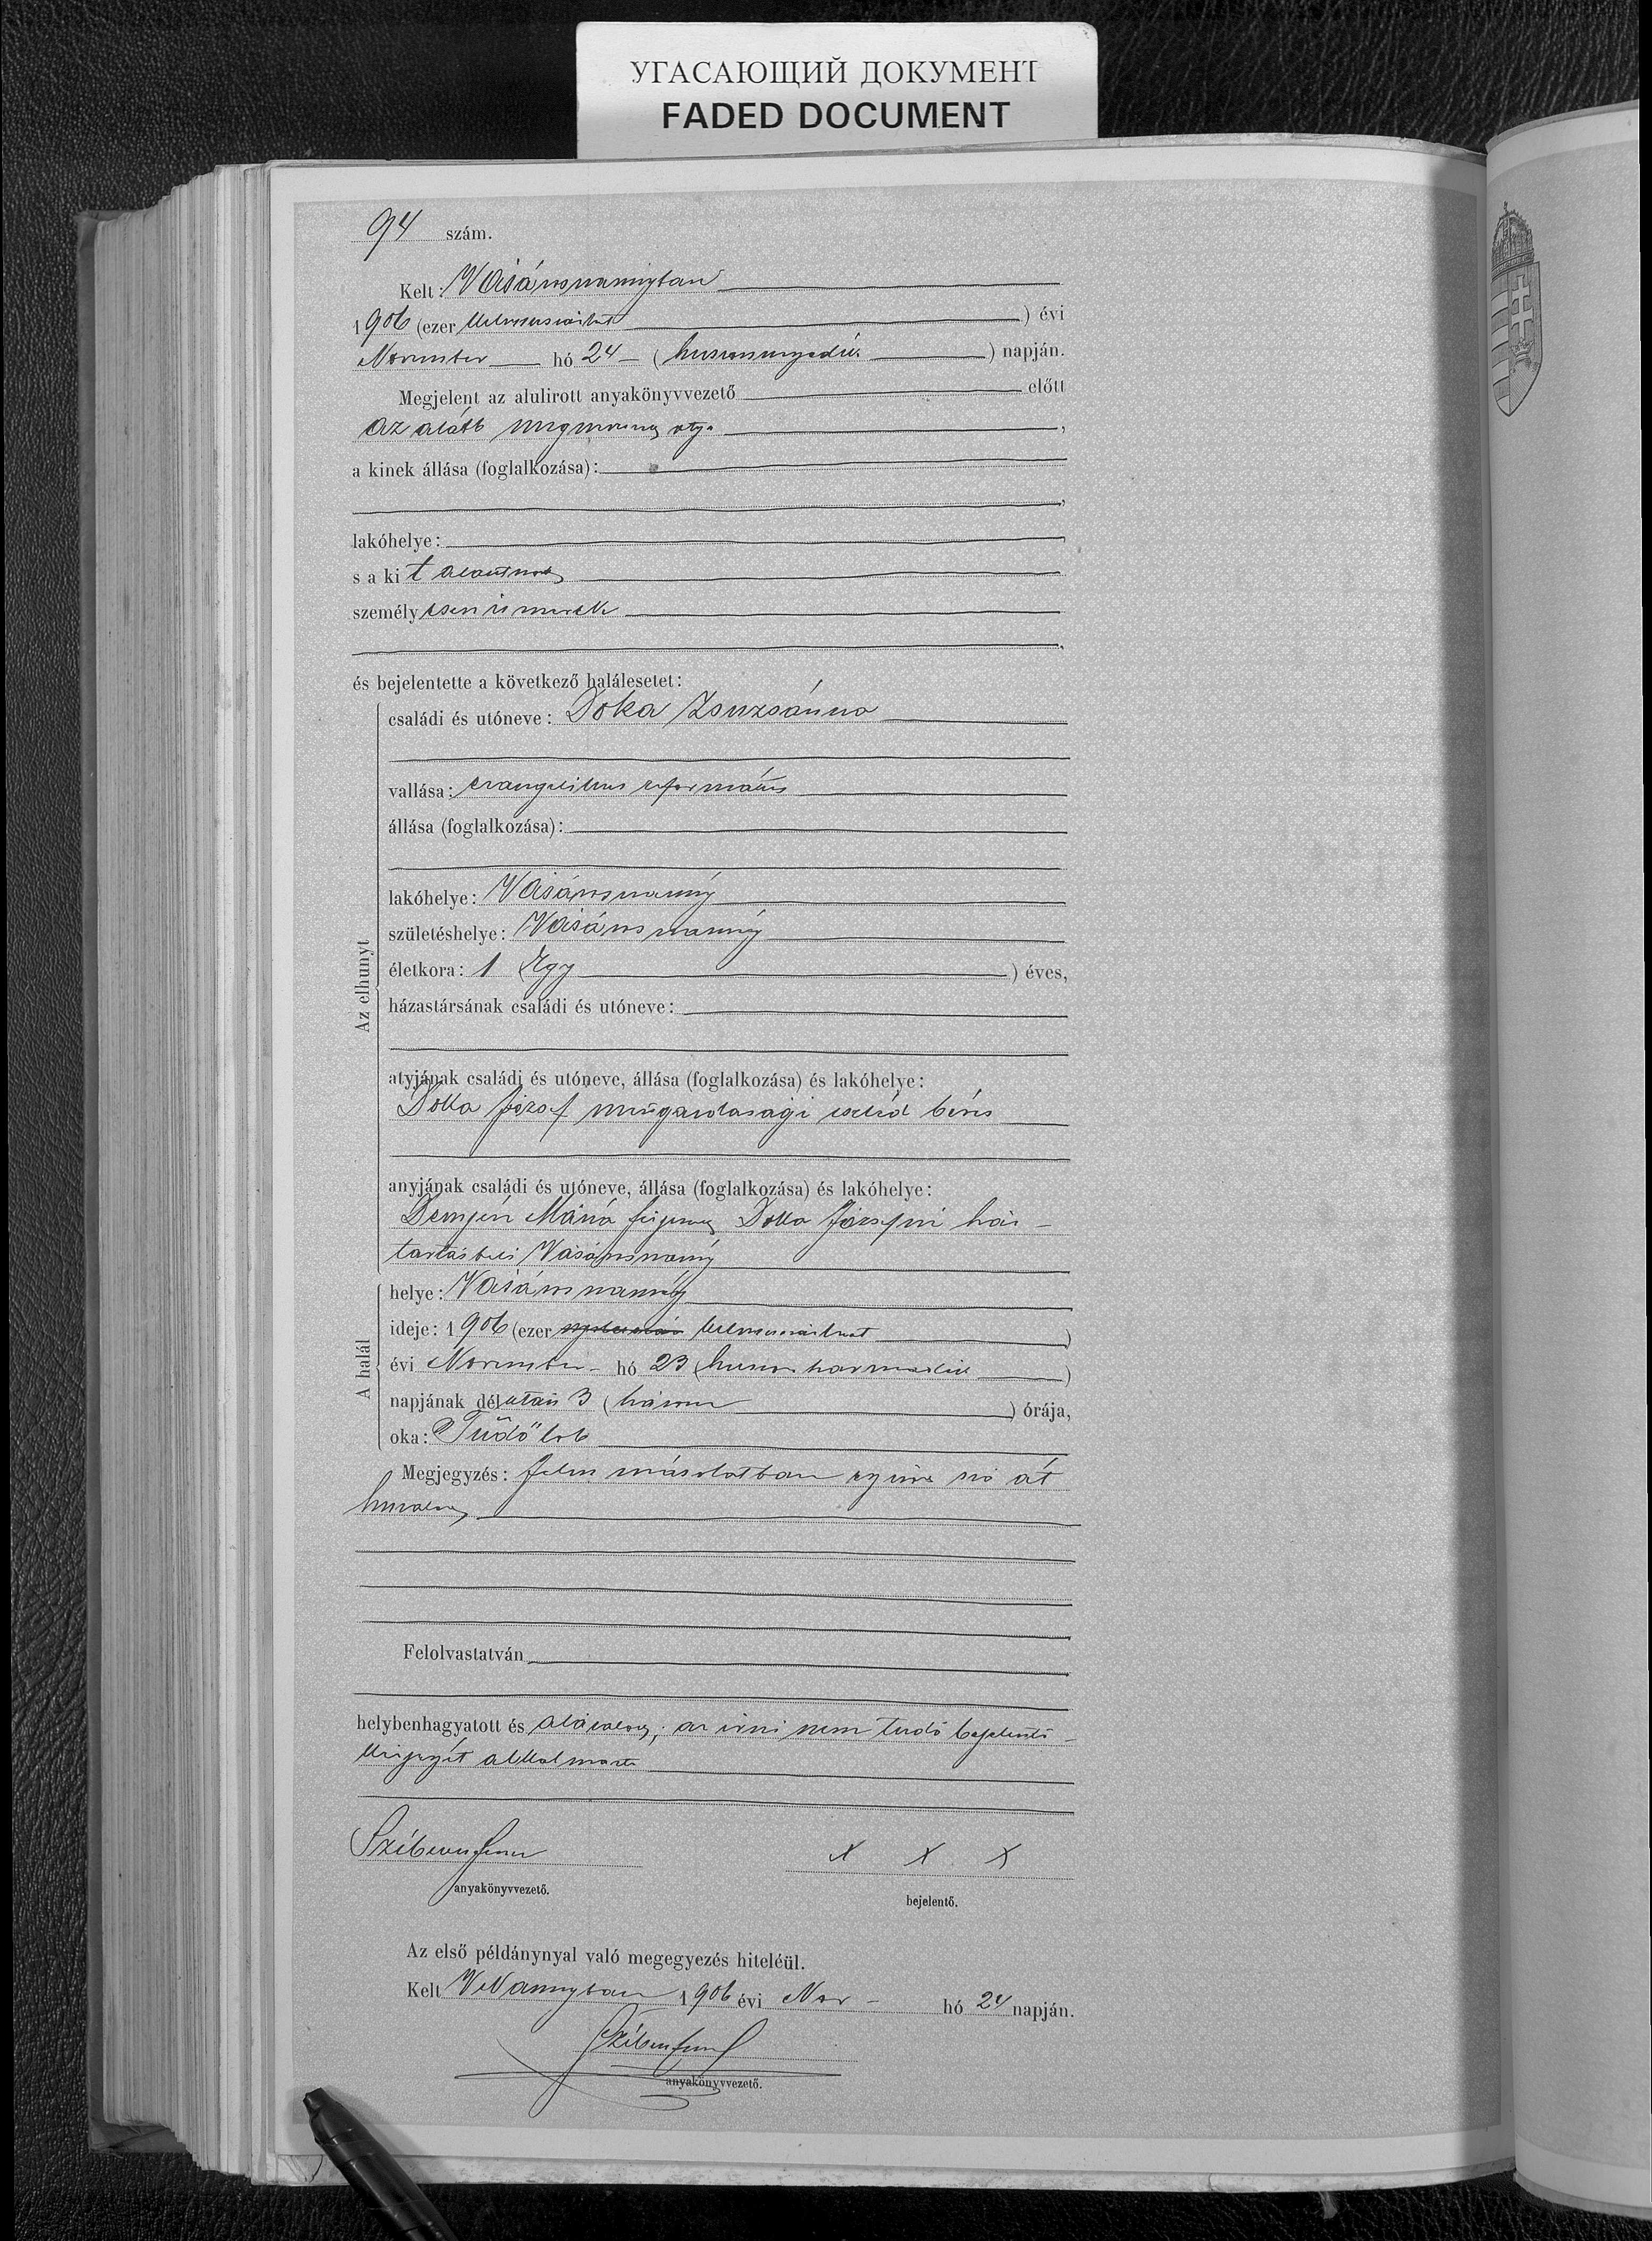 УГАСАЮЩИЙ ДОКУМЕНТ
FADED DOCUMENT
94 szám.
Kelt: Vásárosnaményban
1906 (ezer kilencszázhat) évi
November hó 24 (huszonnegyedik) napján.
Megjelent az alulirott anyakönyvvezető előtt
az alább megnevezett atya,
a kinek állása (foglalkozása):
lakóhelye:
s a kit
személyesen ismerek
és bejelentette a következő halálesetet:
Az elhunyt
családi és utóneve: Doka Zsuzsánna
vallása: evangelikus református
állása (foglalkozása):
lakóhelye: Vásárosnamény
születéshelye: Vásárosnamény
életkora: 1 Egy) éves,
házastársának családi és utóneve:
atyjának családi és utóneve, állása (foglalkozása) és lakóhelye:
Doka József mezőgazdasági cseléd béres
anyjának családi és utóneve, állása (foglalkozása) és lakóhelye:
Demjén Mária Doka Józsefné ház-
tartásbeli Vásárosnamény
A halál
helye: Vásárosnamény
ideje: 1906 (ezer kilencszázhat)
évi November hó 23 (huszonharmadik)
napjának délután 3 (három) órája,
oka: Tüdőlob
Megjegyzés: Jelen másolatban egy szó át
huzva
Felolvastatván
helybenhagyatott és aláíratott; az írni nem tudó bejelentő
kézjegyét alkalmazta
anyakönyvvezető.
x x x
bejelentő.
Az első példánynyal való megegyezés hiteléül.
Kelt VNaményban 1906 évi Nov hó 24 napján.
anyakönyvvezető.